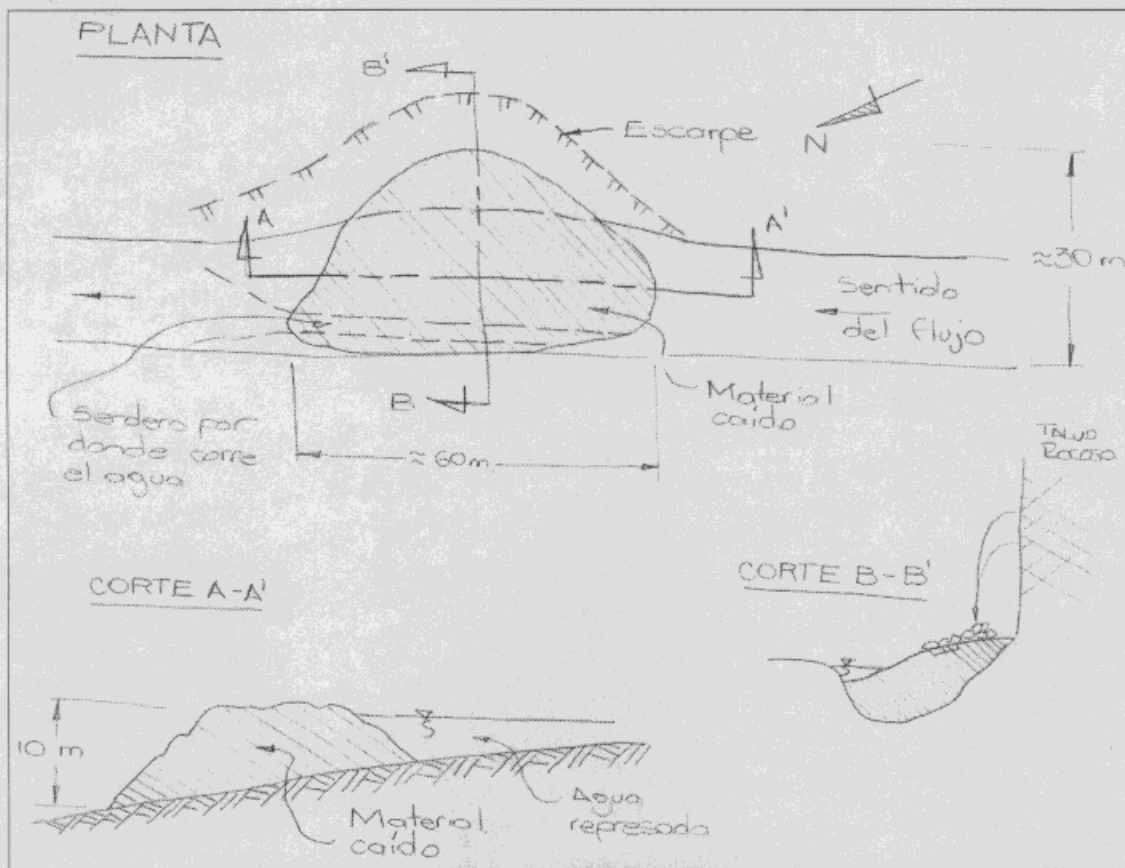 PLANTA
B'
Escarpe
N
A
A'
≈30 m
Sentido
del flujo
B
Material
caído
Sendero por
donde corre
el agua
≈60m
TALUD
ROCOSO
CORTE A-A'
CORTE B-B'
10 m
Material
caído
Agua
represada